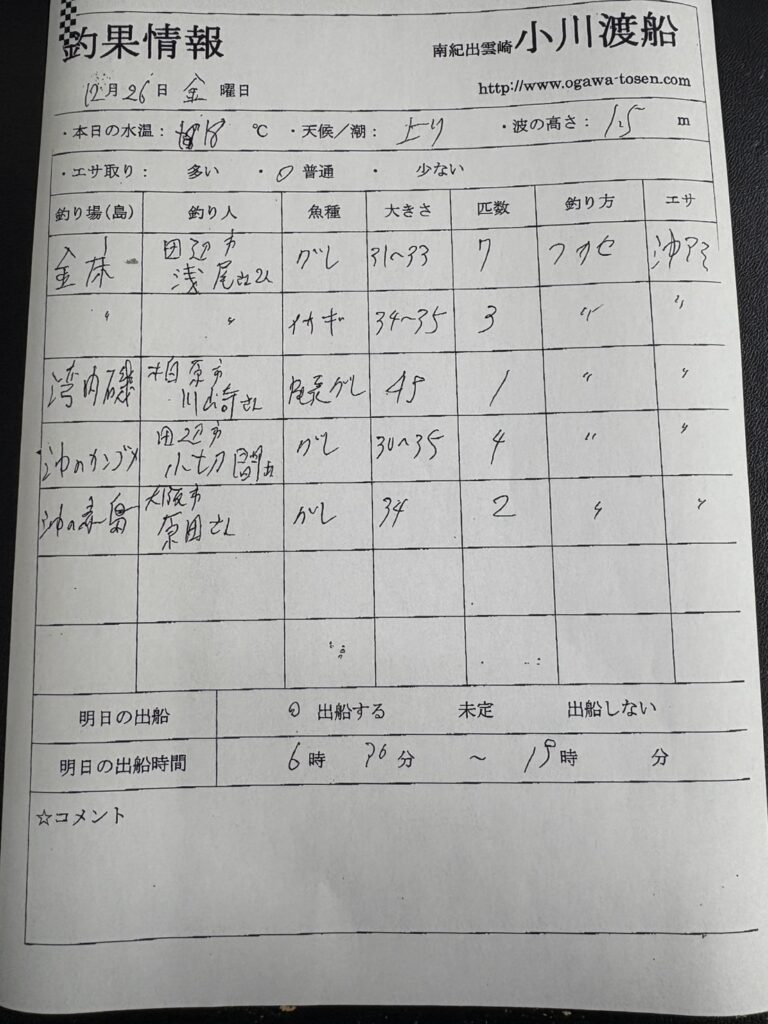 釣果情報
南紀出雲崎 小川渡船
http://www.ogawa-tosen.com
12月26日 金 曜日
・本日の水温： 18 ℃ ・天候／潮： 上り ・波の高さ： 1.5 m
・エサ取り： 多い ・○ 普通 ・ 少ない
釣り場（島） 釣り人 魚種 大きさ 匹数 釣り方 エサ
田辺市
浅尾さん グレ 31〜33 7 フカセ 沖アミ
〃 〃 イサギ 34〜35 3 〃 〃
湾内磯 柏原市
川崎さん 尾長グレ 45 1 〃 〃
沖のカンゴメ 田辺市
小切間 グレ 30〜35 4 〃 〃
沖の赤島 大阪市
原田さん グレ 34 2 〃 〃
明日の出船 ○ 出船する 未定 出船しない
明日の出船時間 6時 30分 〜 時 分
☆コメント